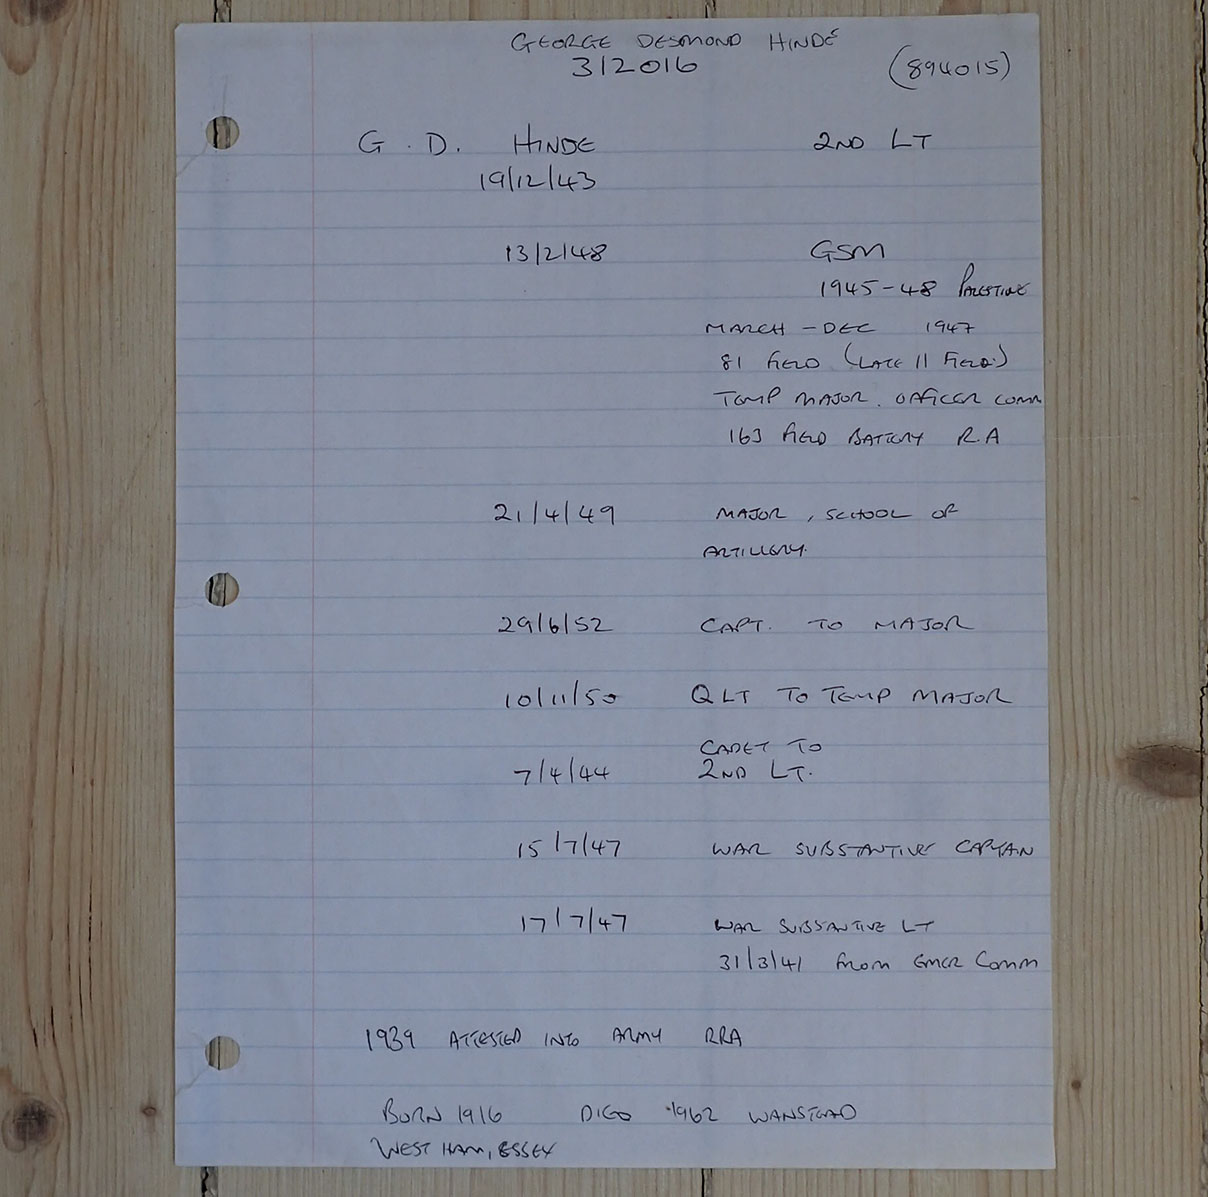 GEORGE DESMOND HINDE
312016 (894015)
G. D. HINDE 2ND LT
19/12/43
13/2/48 GSM
1945-48 PALESTINE
MARCH - DEC 1947
81 FIELD (LATE 11 FIELD)
TEMP MAJOR. OFFICER COMM
163 FIELD BATTERY R.A
21/4/49 MAJOR, SCHOOL OF
ARTILLERY.
29/6/52 CAPT. TO MAJOR
10/11/50 Q LT TO TEMP MAJOR
CADET TO
7/4/44 2ND LT.
15/7/47 WAR SUBSTANTIVE CAPTAIN
17/7/47 WAR SUBSTANTIVE LT
31/3/41 FROM EMER COMM
1939 ATTESTED INTO ARMY RRA
BORN 1916 DIED 1962 WANSTEAD
WEST HAM, ESSEX